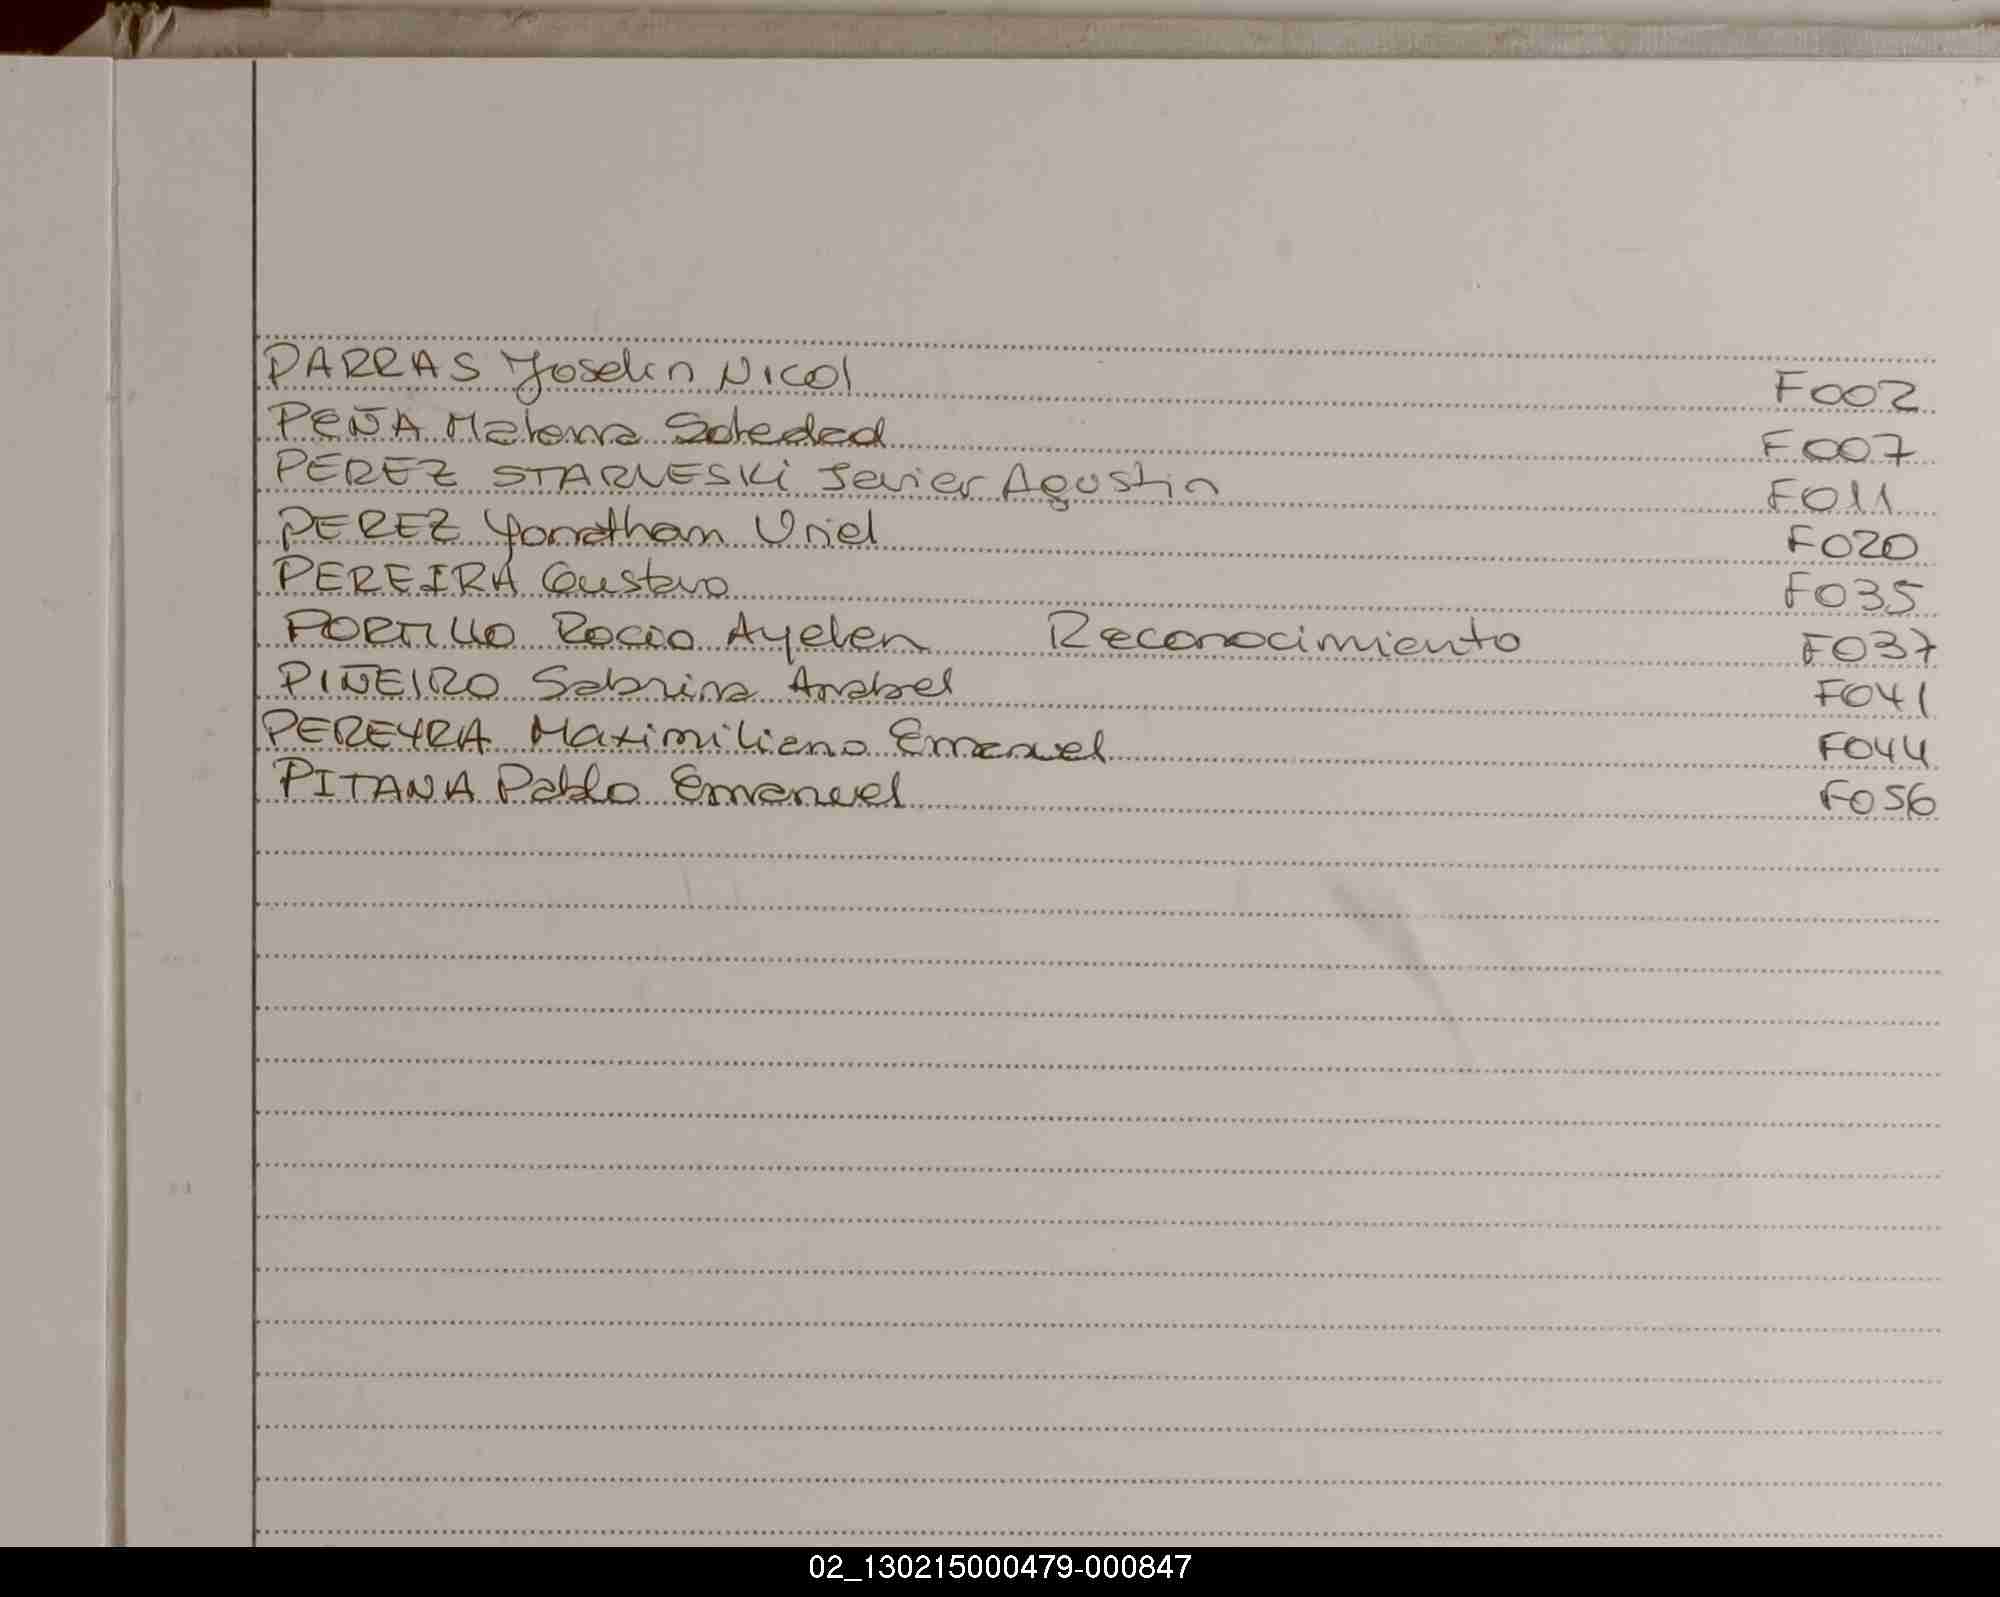 PARRAS Joselin Nicol F002
PEÑA Malena Soledad F007
PEREZ STARVESKi Javier Agustin F011
PEREZ Yonatham Uriel F020
PEREIRA Gustavo F035
PORTILLO Rocio Ayelen Reconocimiento F037
PIÑEIRO Sabrina Anabel F041
PEREYRA Maximiliano Emanuel F044
PITANA Pablo Emanuel F056
02_130215000479-000847